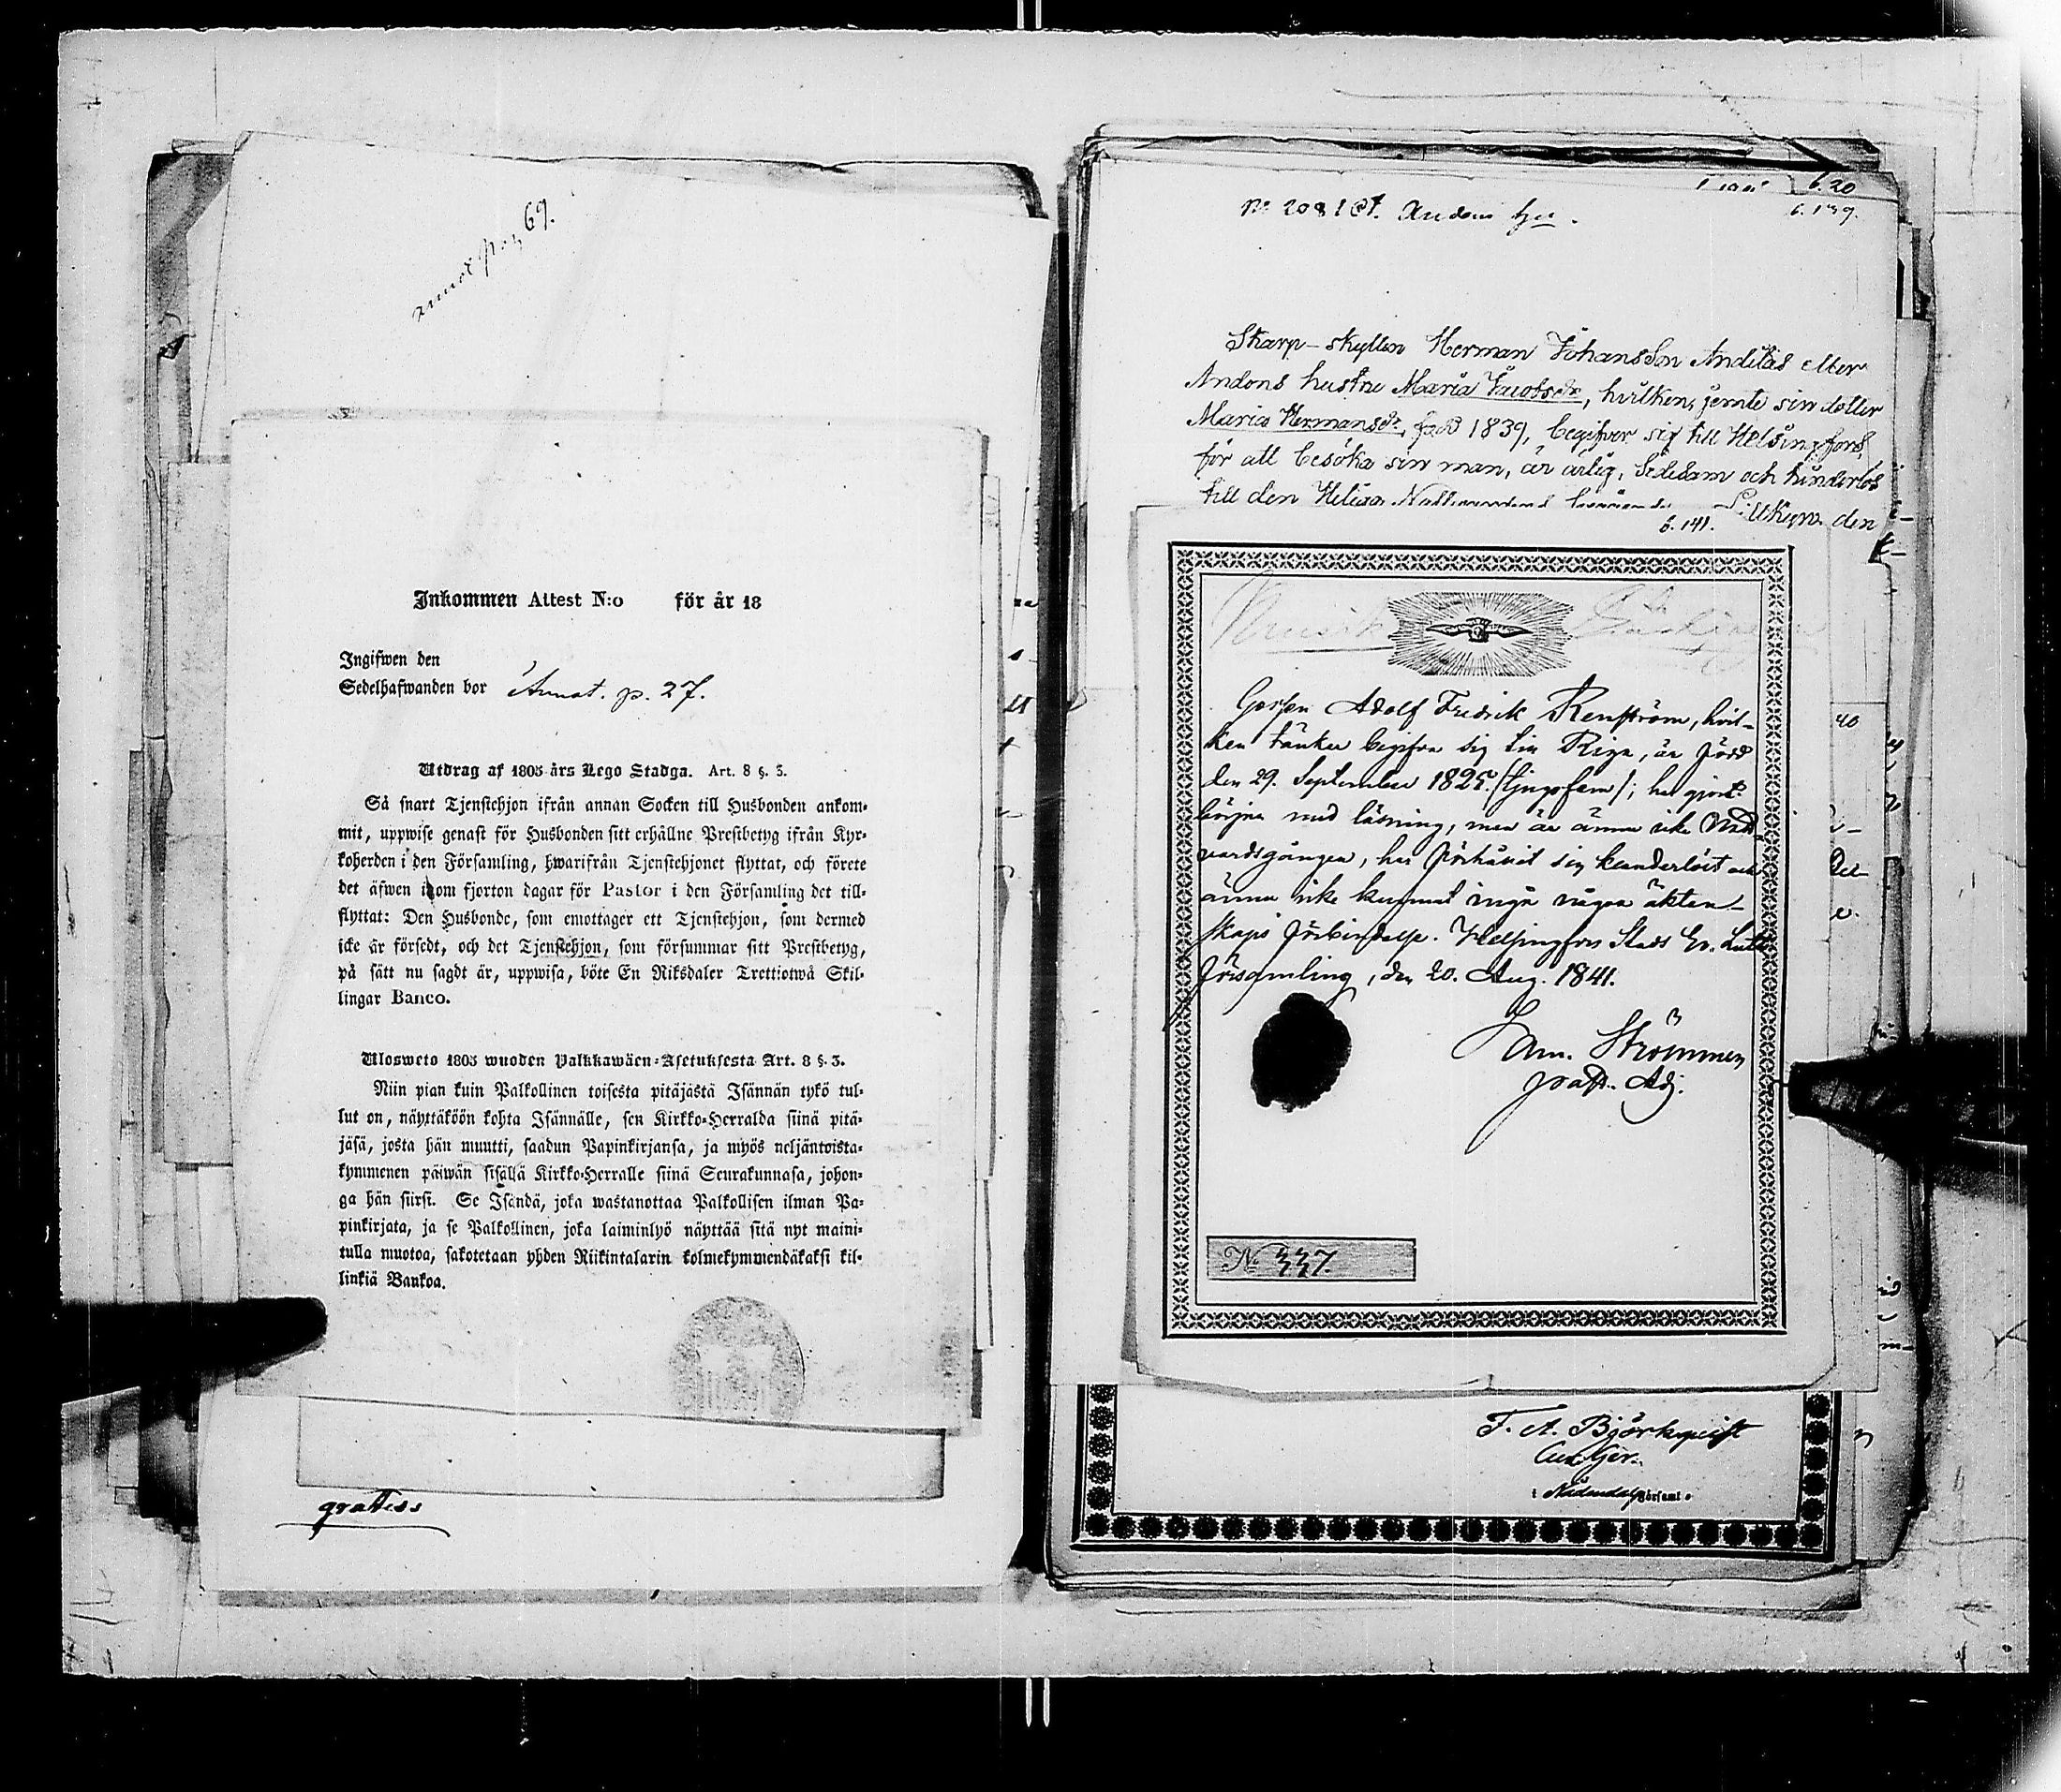 69.
Inkommen Attest N:o för år 18
Ingifwen den
Sedelhafwanden bor Annot. p. 27.
Utdrag af 1805 års Lego Stadga. Art. 8 §. 3.
Så snart Tjenstehjon ifrån annan Socken till Husbonden ankom-
mit, uppwise genast för Husbonden sitt erhållne Prestbetyg ifrån Kyr-
koherden i den Församling, hwarifrån Tjenstehjonet flyttat, och förete
det äfwen inom fjorton dagar för Pastor i den Församling det till-
flyttat: Den Husbonde, som emottager ett Tjenstehjon, som dermed
icke är försedt, och det Tjenstehjon, som försummar sitt Prestbetyg,
på sätt nu sagdt är, uppwisa, böte En Riksdaler Trettiotwå Skil-
lingar Banco.
Ulosweto 1805 wuoden Palkkawäen-Asetuksesta Art. 8 §. 3.
Niin pian kuin Palkollinen toisesta pitäjästä Isännän tykö tul-
lut on, näyttäköön kohta Isännälle, sen Kirkko-Herralda siinä pitä-
jäsä, josta hän muutti, saadun Papinkirjansa, ja myös neljäntoista-
kymmenen päiwän sisällä Kirkko-Herralle siinä Seurakunnasa, johon-
ga hän siirsi. Se Isändä, joka wastanottaa Palkollisen ilman Pa-
pinkirjata, ja se Palkollinen, joka laiminlyö näyttää sitä nyt maini-
tulla muotoa, sakotetaan yhden Riikintalarin kolmekymmendäkaksi kil-
linkiä Bankoa.
gratis
6.20
6.139.
Skarp-skytten Herman Johansson Anditas eller
Andons hustru Maria Jacobsdr, hvilken, jemte sin dotter
Maria Hermansdr, född 1839, begifver sig till Helsingfors,
för att besöka sin man, är ärlig, sedesam och hinderlös
till den Heliga Nattvardens Lillkyro den
6.141.
Gossen Adolf Fredrik Renström, hvil-
ken tänker begifva sig till Riga, är född
den 29. September 1825. /tjugofem/; har gjort
början med läsning, men är ännu icke Natt-
vardsgången, har förhållit sig klanderlöst och
ännu icke kunnat ingå några äkten-
skaps förbindelse. Helsingfors Stads Ev. Luth.
församling, den 20. Aug. 1841.
Sam. Strömmer
past. Adj.
No 337.
F. A. Björkqvist
i Nådendals Församl.